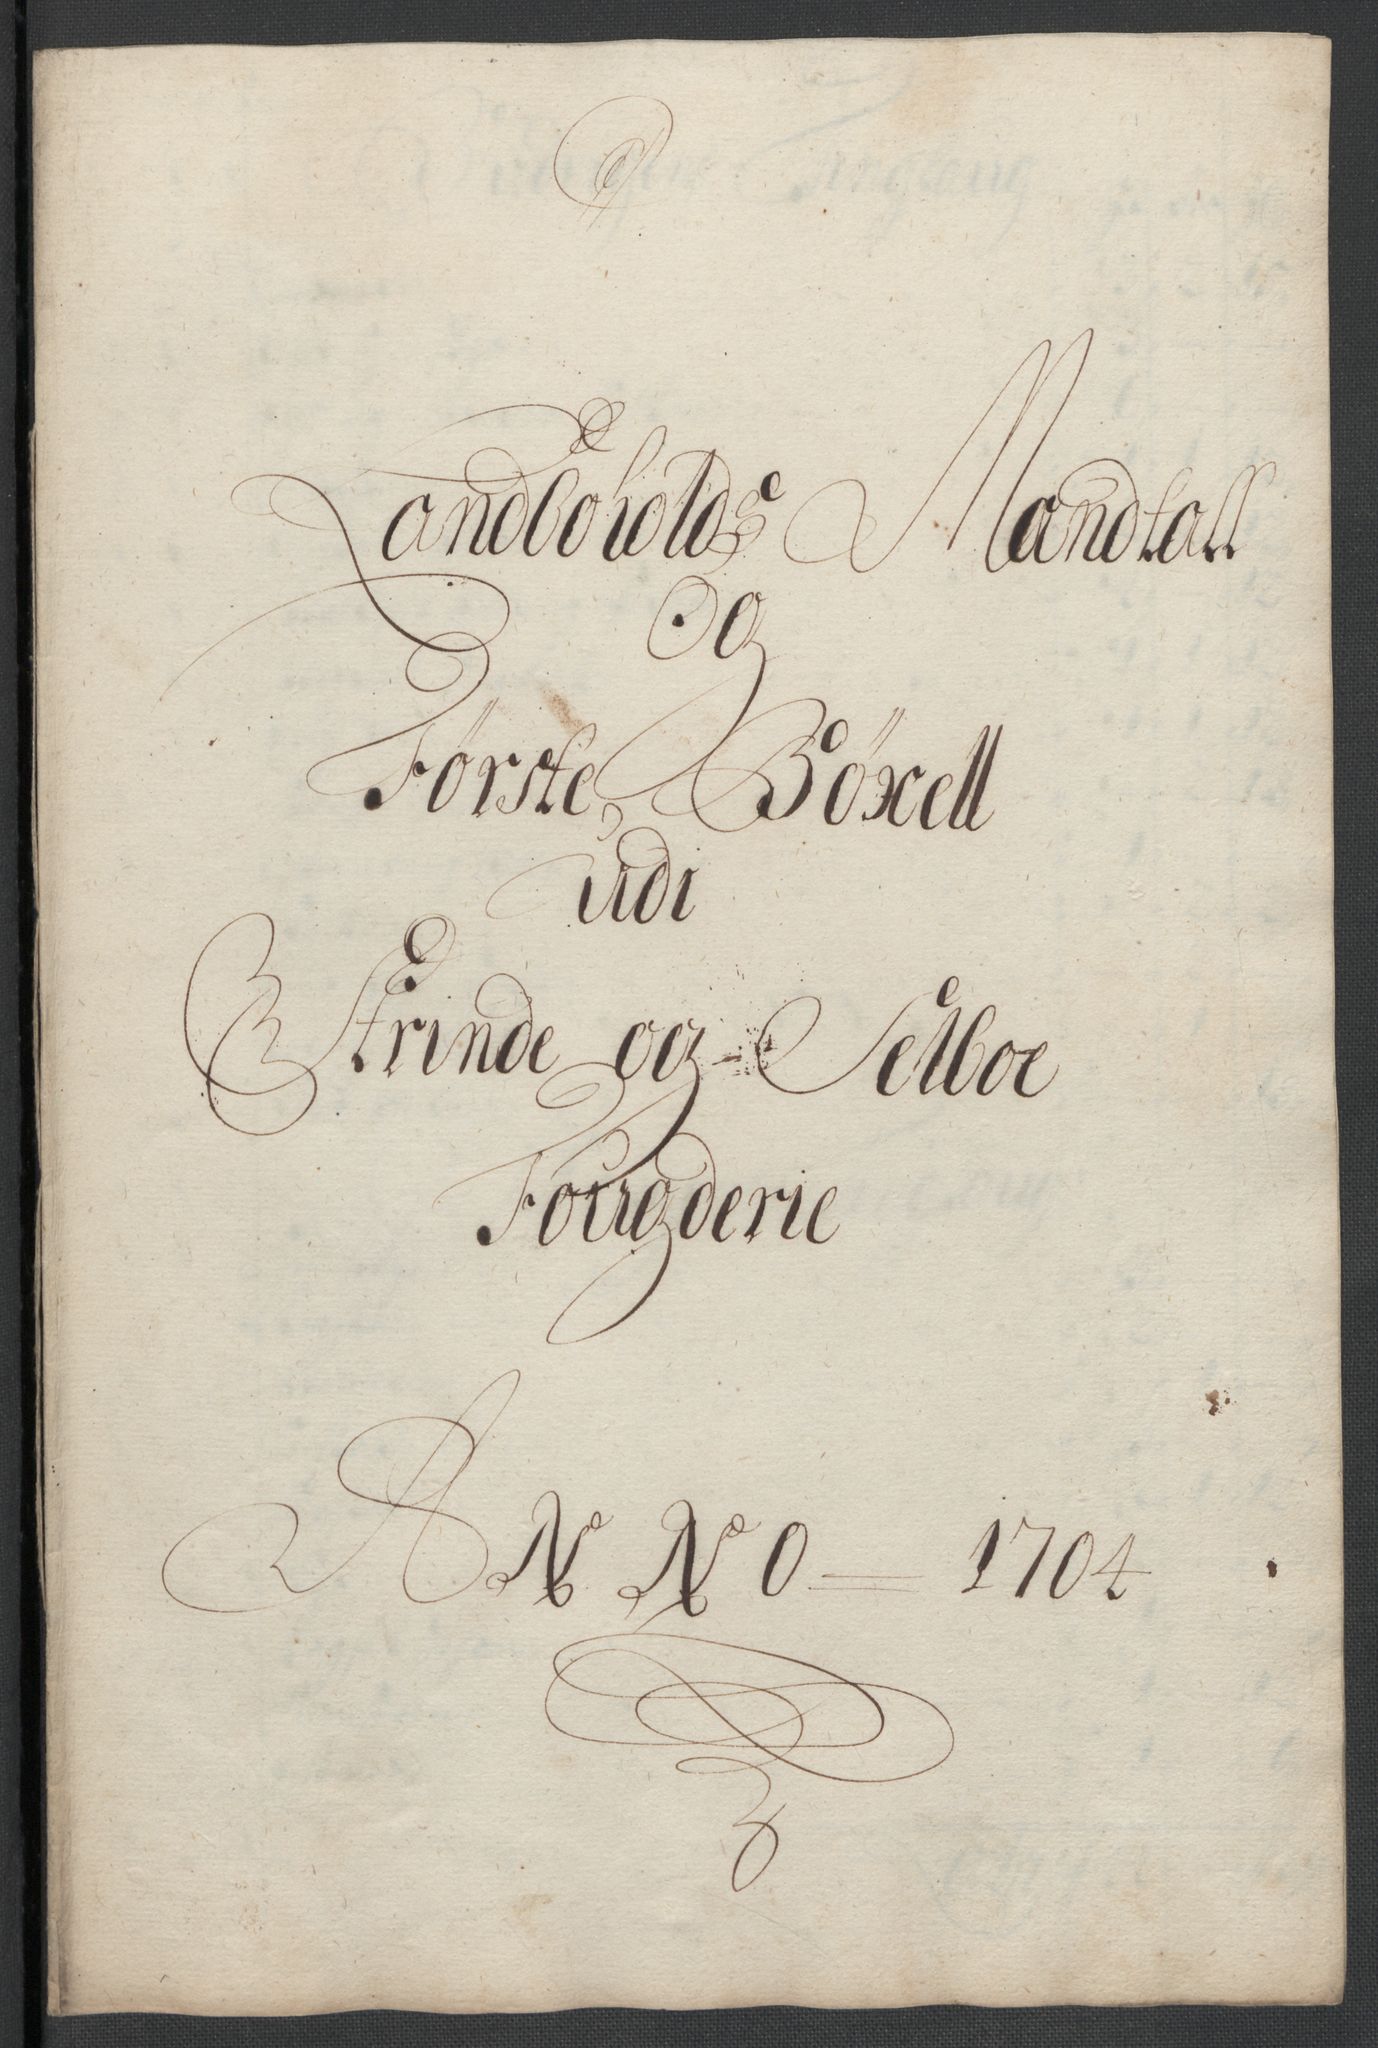 Landboholds Mandtall
Og
Første Böxell
udi
Strinde og Selboe
Fougderie
ANNO 1704